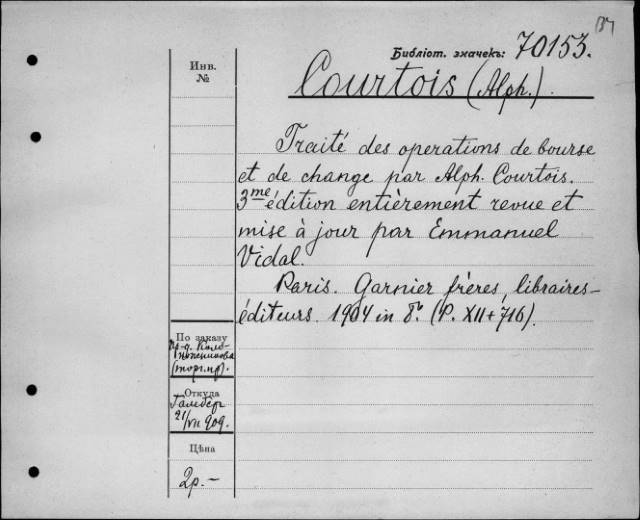 Библіот. значекъ: 70153.
Инв.
№
Courtois (Alph.).
Traité des operations de bourse
et de change par Alph. Courtois.
3me édition entièrement revue et
mise à jour par Emmanuel
Vidal.
Paris. Garnier frères, libraires-
éditeurs. 1904 in 8°. (P. XII+716).
По заказу
(торг. пр).
Откуда
21/VII 909.
Цѣна
2р.-